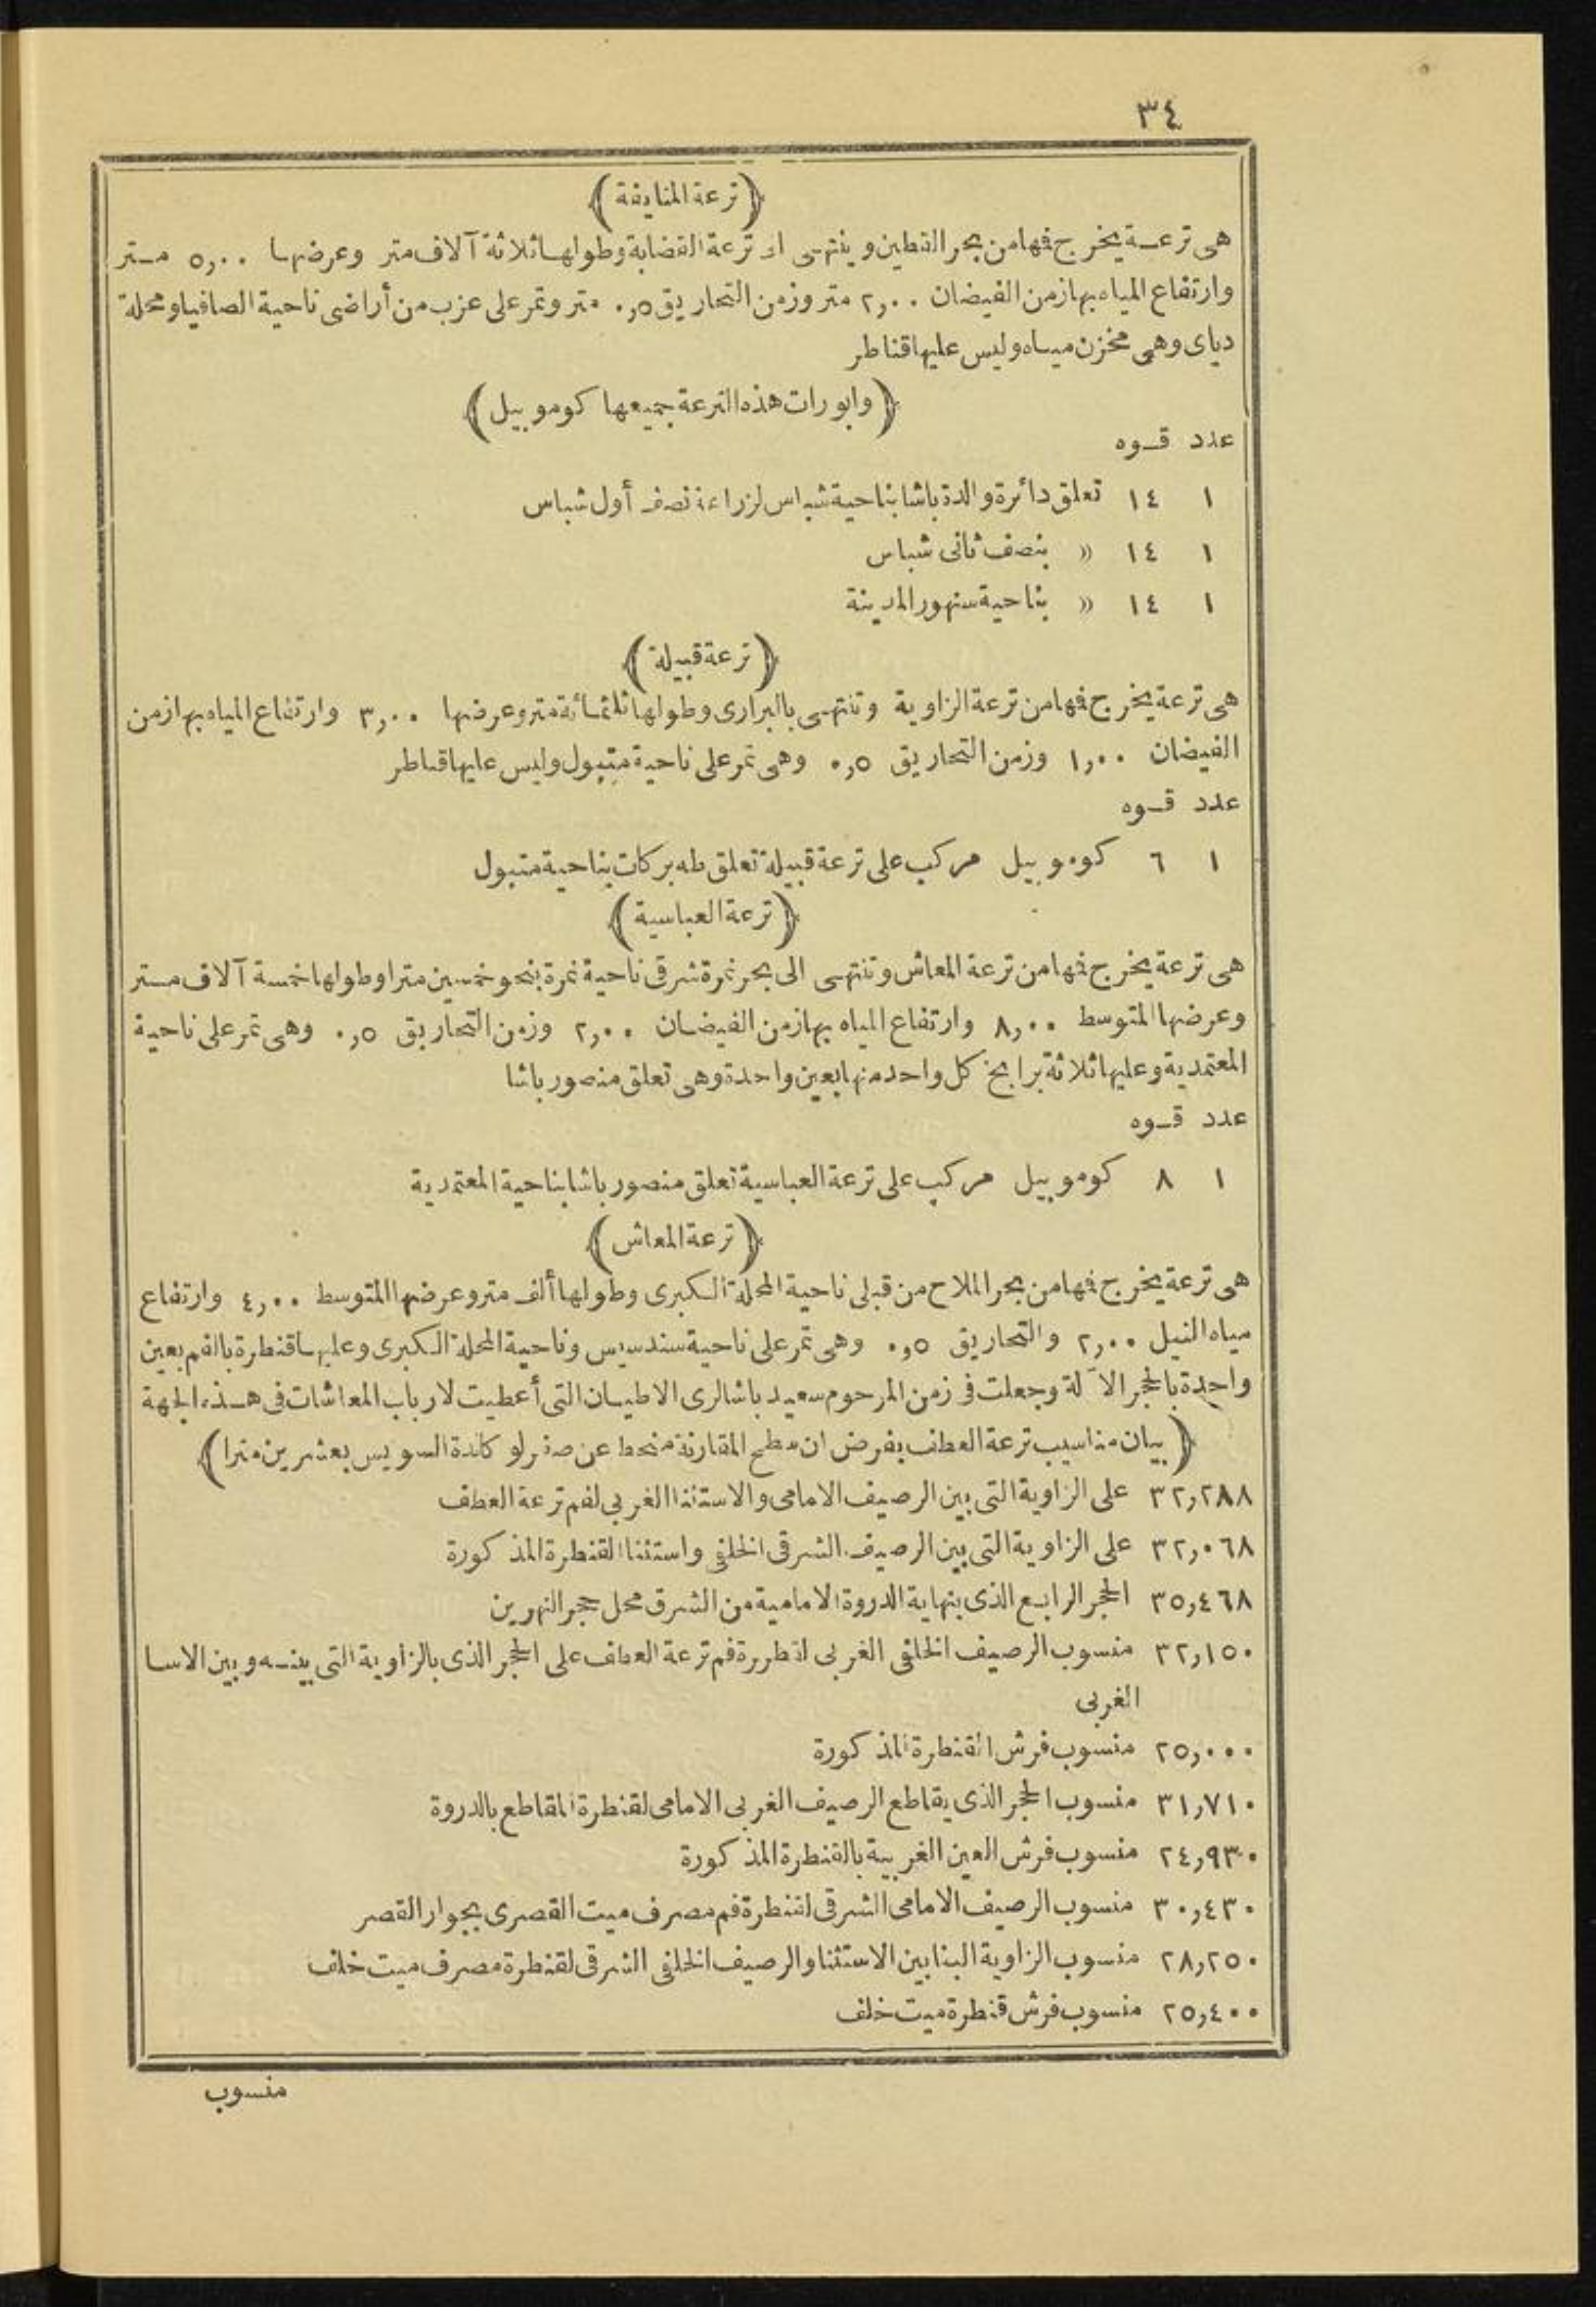 ٣٤
(ترعة المنايفة)
هى ترعة يخرج فمها من بحر القطين وينتهى الى ترعة القضابة وطولها ثلاثة آلاف متر وعرضها ٥,٠٠ متر
وارتفاع المياه بها زمن الفيضان ٢,٠٠ متر وزمن التحاريق ٠,٥ متر وتمر على عزب من أراضى ناحية الصافيا ومحلة
دياى وهى مخزن مياه وليس عليها قناطر
(وابورات هذه الترعة جميعها كوموبيل)
عدد قوه
١ ١٤ تعلق دائرة والدة باشا بناحية شباس لزراعة نصف أول شباس
١ ١٤ » بنصف ثانى شباس
١ ١٤ » بناحية سنهور المدينة
(ترعة قبيلة)
هى ترعة يخرج فمها من ترعة الزاوية وتنتهى بالبرارى وطولها ثلثمائة متر وعرضها ٣,٠٠ وارتفاع المياه بها زمن
الفيضان ١,٠٠ وزمن التحاريق ٠,٥ وهى تمر على ناحية متبول وليس عليها قناطر
عدد قوه
١ ٦ كوموبيل مركب على ترعة قبيلة تعلق طه بركات بناحية متبول
(ترعة العباسية)
هى ترعة يخرج فمها من ترعة المعاش وتنتهى الى بحر نمرة شرقى ناحية نمرة بنحو خمسين مترا وطولها خمسة آلاف متر
وعرضها المتوسط ٨,٠٠ وارتفاع المياه بها زمن الفيضان ٢,٠٠ وزمن التحاريق ٠,٥ وهى تمر على ناحية
المعتمدية وعليها ثلاثة برابخ كل واحد منها بعين واحدة وهى تعلق منصور باشا
عدد قوه
١ ٨ كوموبيل مركب على ترعة العباسية تعلق منصور باشا بناحية المعتمدية
(ترعة المعاش)
هى ترعة يخرج فمها من بحر الملاح من قبلى ناحية المحلة الكبرى وطولها ألف متر وعرضها المتوسط ٤,٠٠ وارتفاع
مياه النيل ٢,٠٠ والتحاريق ٠,٥ وهى تمر على ناحية سندسيس وناحية المحلة الكبرى وعليها قنطرة بالفم بعين
واحدة بالحجر الآلة وجعلت فى زمن المرحوم سعيد باشا لرى الاطيان التى أعطيت لارباب المعاشات فى هذه الجهة
(بيان مناسيب ترعة العطف بفرض ان سطح المقارنة منحط عن صفر لوكاندة السويس بعشرين مترا)
٣٢,٢٨٨ على الزاوية التى بين الرصيف الامامى والاستثنا الغربى لفم ترعة العطف
٣٢,٠٦٨ على الزاوية التى بين الرصيف الشرقى الخلفى واستثنا القنطرة المذكورة
٣٥,٤٦٨ الحجر الرابع الذى بنهاية الدروة الامامية من الشرق محل حجر النهرين
٣٢,١٥٠ منسوب الرصيف الخلفى الغربى لقنطرة فم ترعة العطف على الحجر الذى بالزاوية التى بينه وبين الاسا
الغربى
٢٥,٠٠٠ منسوب فرش القنطرة المذكورة
٣١,٧١٠ منسوب الحجر الذى يقاطع الرصيف الغربى الامامى لقنطرة المقاطع بالدروة
٢٤,٩٣٠ منسوب فرش العين الغربية بالقنطرة المذكورة
٣٠,٤٣٠ منسوب الرصيف الامامى الشرقى لقنطرة فم مصرف ميت القصرى بجوار القصر
٢٨,٢٥٠ منسوب الزاوية البنا بين الاستثنا والرصيف الخلفى الشرقى لقنطرة مصرف ميت خلف
٢٥,٤٠٠ منسوب فرش قنطرة ميت خلف
منسوب